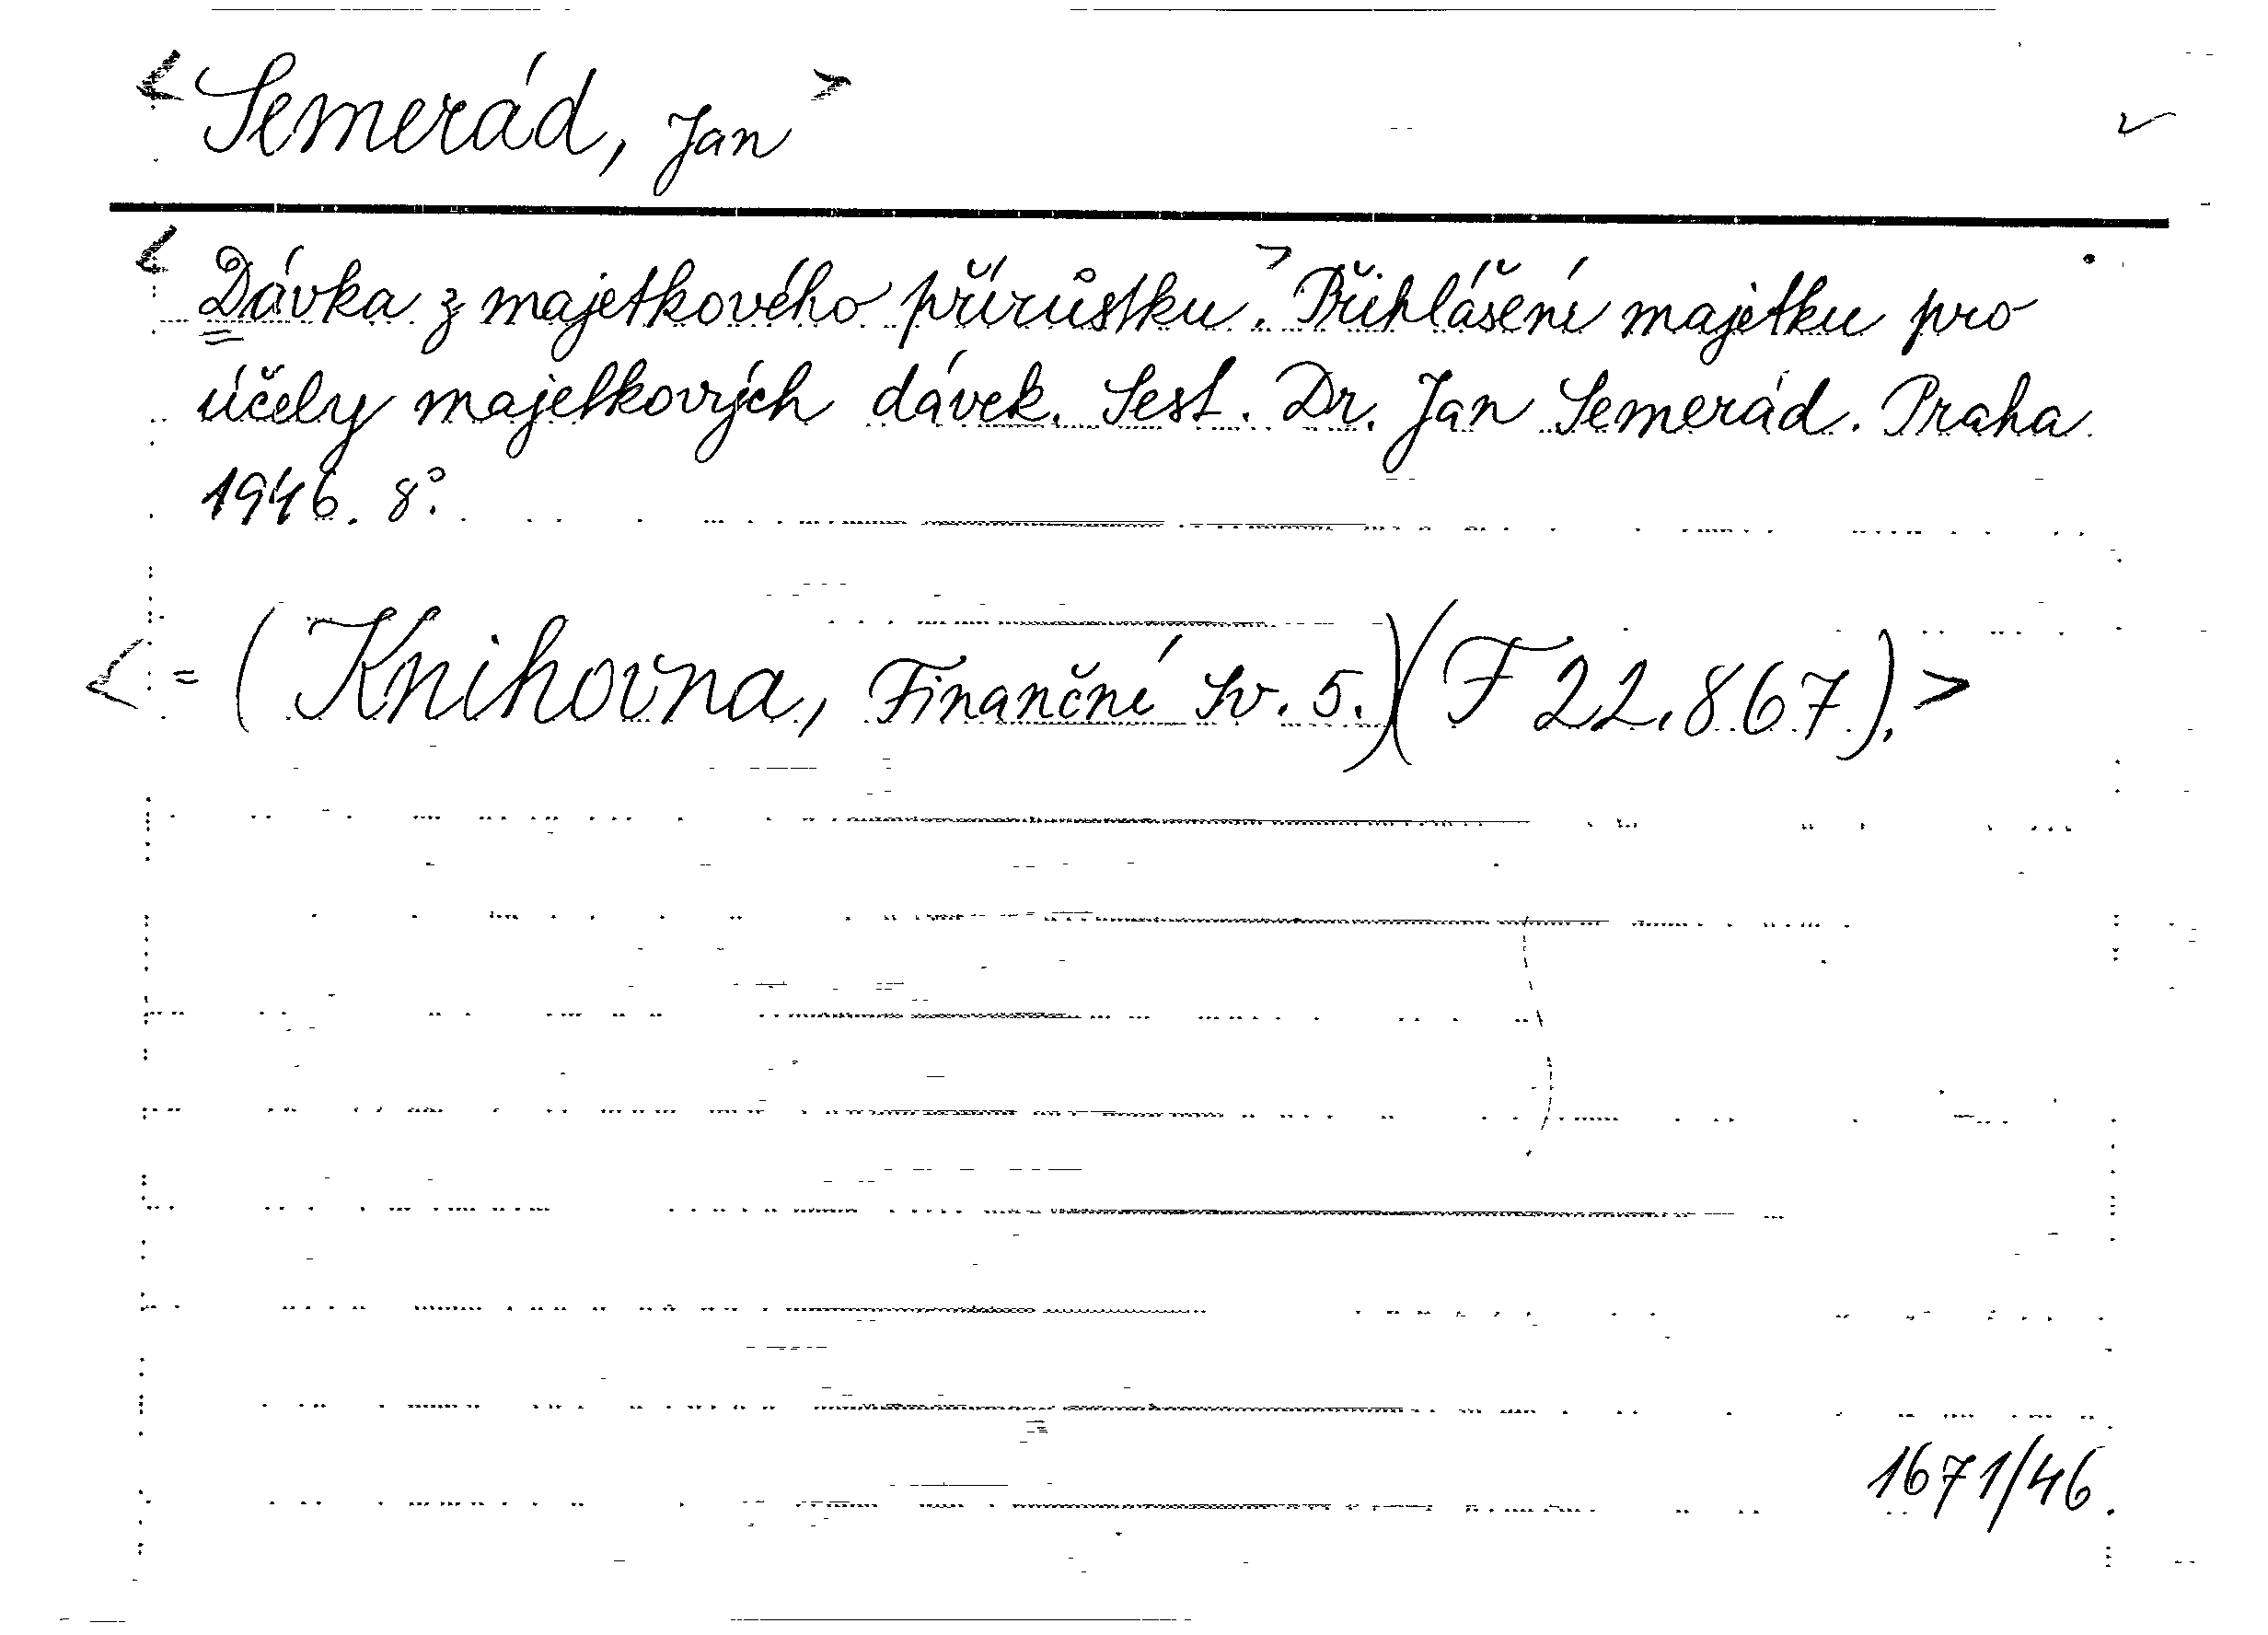 < Semerád, Jan >
< Dávka z majetkového přírůstku.> Přihlášení majetku pro
účely majetkových dávek. Sest. Dr. Jan Semerád. Praha
1946. 8°.
< = (Knihovna, Finanční Sv. 5.)(F 22.867).>
1671/46.